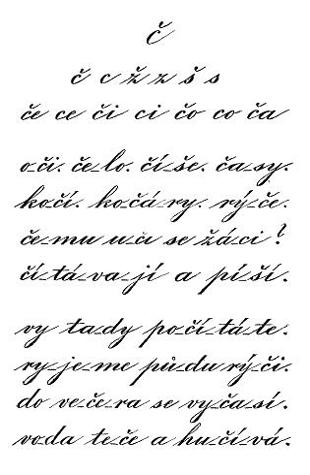 č
č c ž z š s
če ce či ci čo co ča
o-či. če-lo. čí-še. ča-sy.
ko-čí. ko-čá-ry. rý-če.
če-mu u-čí se žá-ci?
čí-tá-va-jí a pí-ší.
vy ta-dy po-čí-tá-te.
ry-je-me pů-du rý-či.
do ve-če-ra se vy-ča-sí.
vo-da te-če a hu-čí-vá.